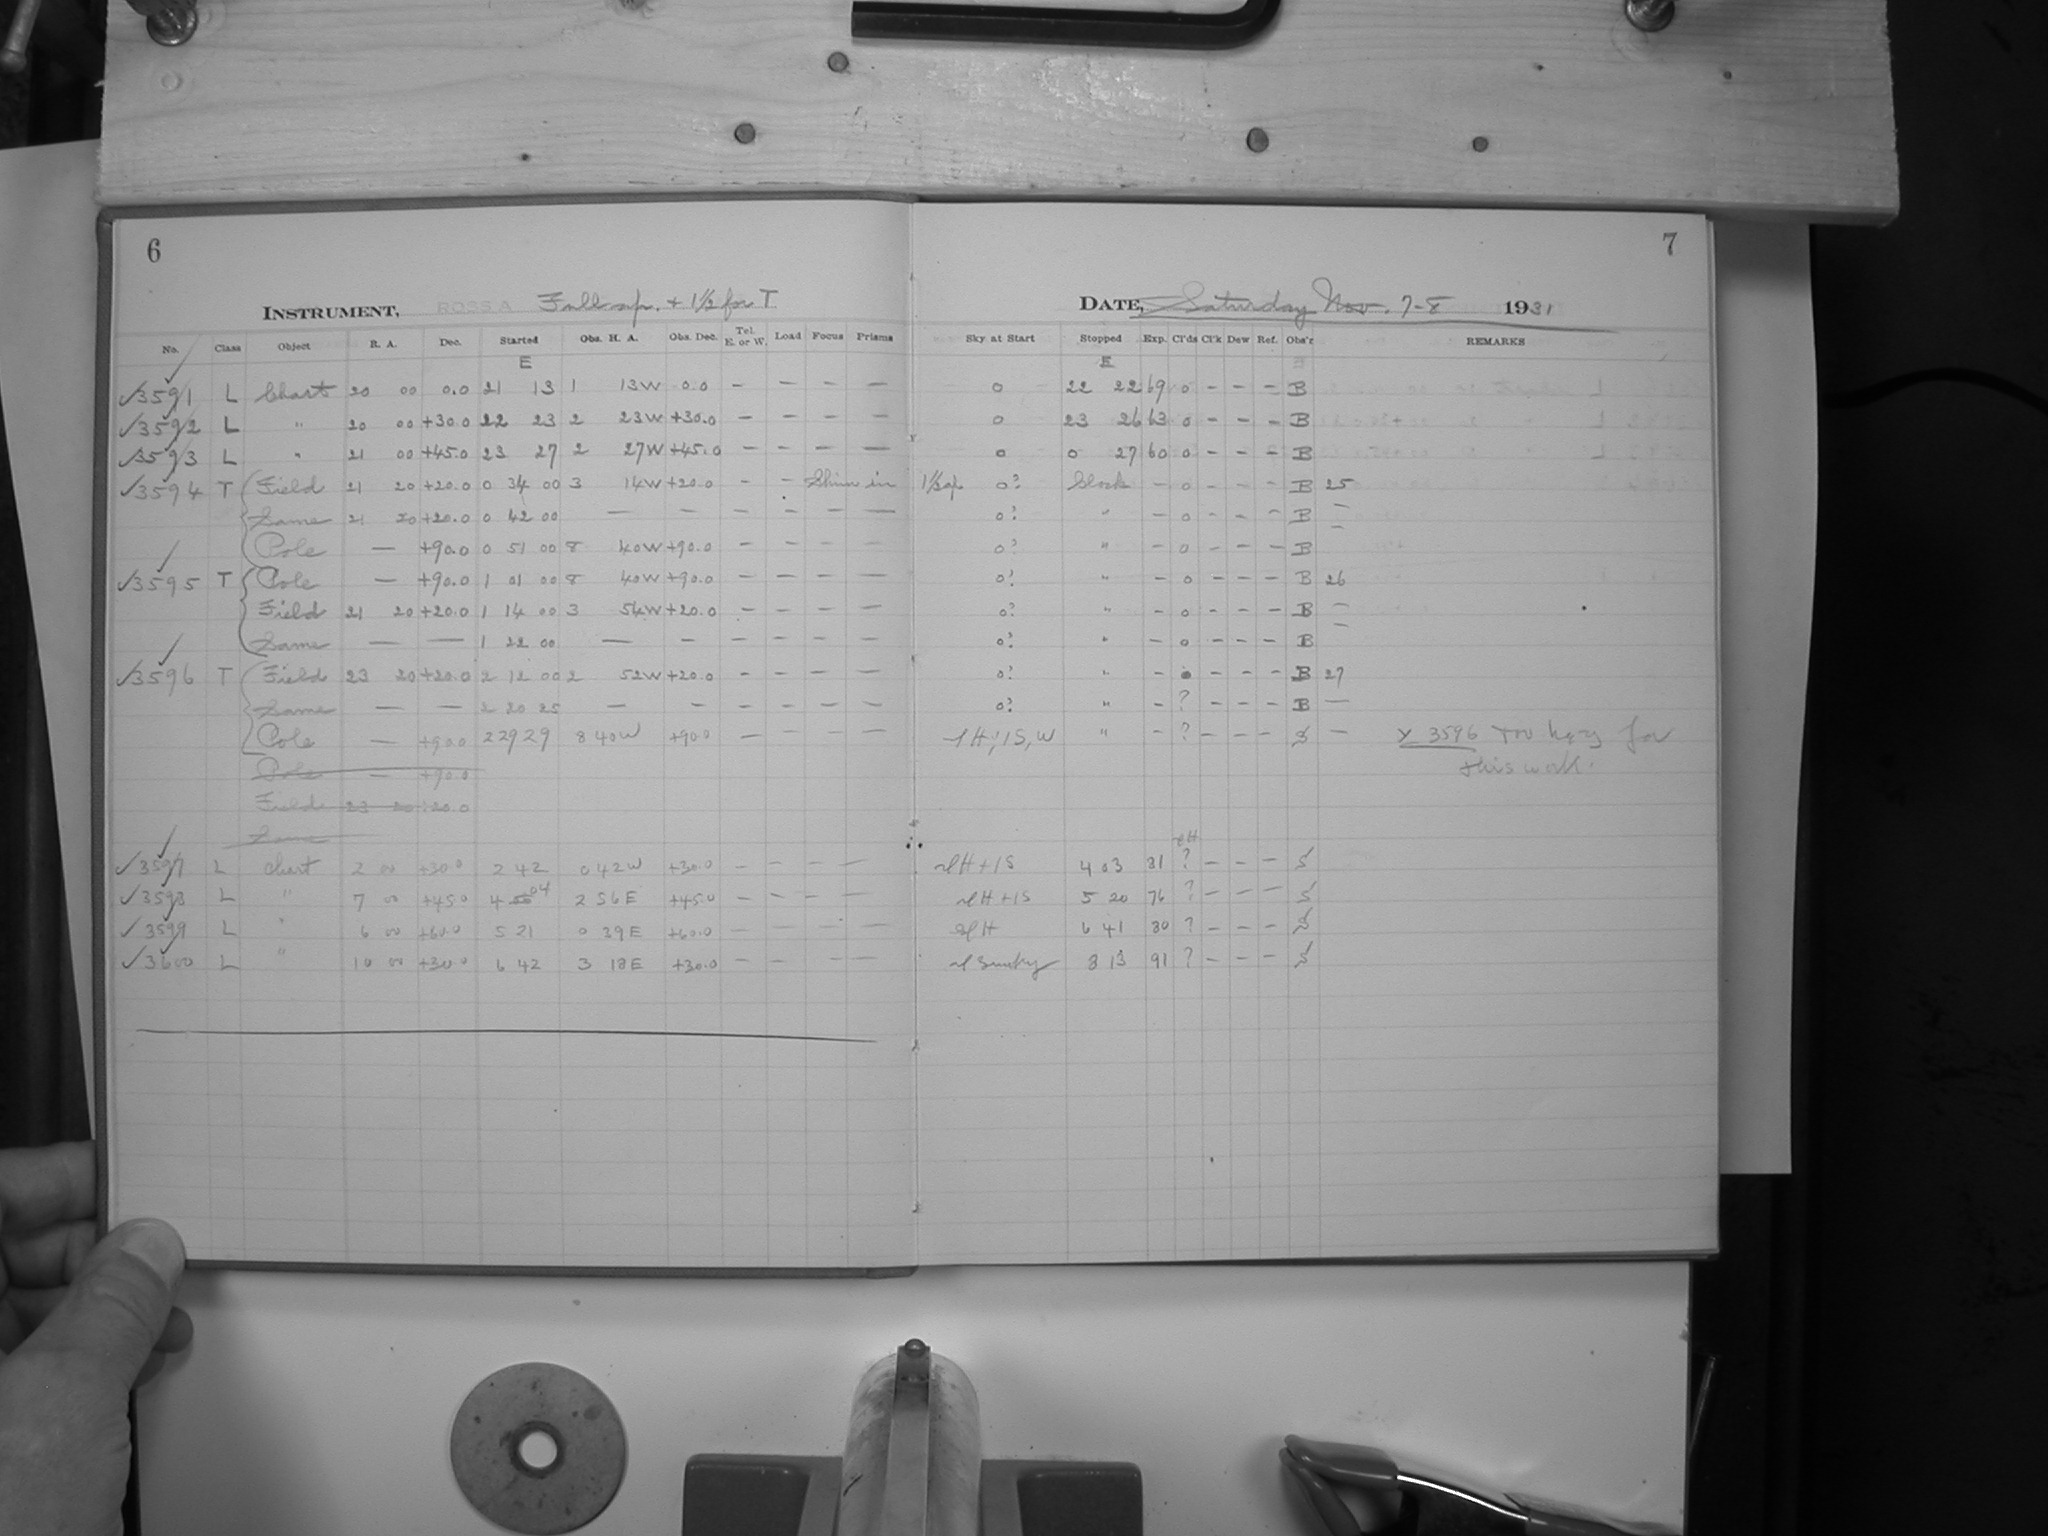 6
7
INSTRUMENT, ROSS A Full ap. + 1½ for T
DATE, Saturday Nov. 7-8 1931
No. Class Object R. A. Dec. Started Obs. H. A. Obs. Dec. Tel. E. or W. Load Focus Prisms Sky at Start Stopped Exp. Cl'ds Cl'k Dew Ref. Obs'r REMARKS
E E
✓3591 L Chart 20 00 0.0 21 13 1 13W 0.0 – – – – 0 22 22 69 0 – – – B
✓3592 L " 20 00 +30.0 22 23 2 23W +30.0 – – – – 0 23 26 63 0 – – – B
✓3593 L " 21 00 +45.0 23 27 2 27W +45.0 – – – – 0 0 27 60 0 – – – B
✓3594 T Field 21 20 +20.0 0 34 00 3 14W +20.0 – – Shim in 1½ap 0? Clock – 0 – – – B 25
Same 21 20 +20.0 0 42 00 — – – – – – 0? " – 0 – – – B –
Pole — +90.0 0 51 00 8 40W +90.0 – – – – 0? " – 0 – – – B –
✓3595 T Pole — +90.0 1 01 00 8 40W +90.0 – – – – 0? " – 0 – – – B 26
Field 21 20 +20.0 1 14 00 3 54W +20.0 – – – – 0? " – 0 – – – B –
Same — — 1 22 00 — – – – – – 0? " – 0 – – – B –
✓3596 T Field 23 20 +20.0 2 12 00 2 52W +20.0 – – – – 0? " – 0 – – – B 27
Same — — 2 20 25 — – – – – – 0? " – ? – – – B –
Pole — +90.0 2 29 29 8 40W +90.0 – – – – H; 1S, W " – ? – – – S – X 3596 Too hazy for
this work.
Pole — +90.0
Field 23 20 +20.0
Same
H
✓3597 L Chart 2 00 +30.0 2 42 0 42W +30.0 – – – – H+1S 4 03 81 ? – – – S
✓3598 L " 7 00 +45.0 4 04 2 56E +45.0 – – – – H+1S 5 20 76 ? – – – S
✓3599 L " 6 00 +60.0 5 21 0 39E +60.0 – – – – H 6 41 80 ? – – – S
✓3600 L " 10 00 +30.0 6 42 3 18E +30.0 – – – – Smoky 8 13 91 ? – – – S